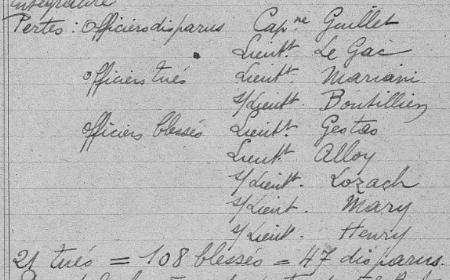 intégrature
Pertes : Officiers disparus Cap.ne Guillet
Lieut.t Le Gac
Officiers tués Lieut.t Mariani
S/Lieut.t Boutillien
Officiers blessés Lieut.t Gestas
Lieut.t Alloy
S/Lieut.t Lozach
S/Lieut. Mary
S/Lieut. Henry
21 tués = 108 blessés = 47 disparus.